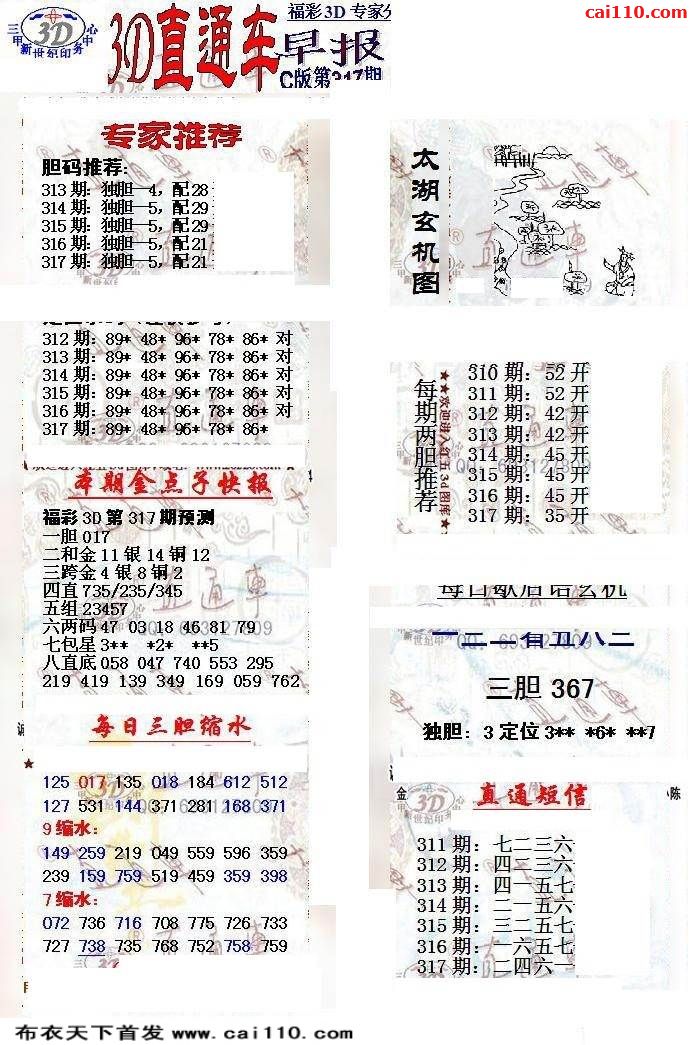 福彩3D 专家
cai110.com
三甲新世纪印务中心
3D
3D直通车早报
C版第317期
专家推荐
胆码推荐:
313期: 独胆—4, 配28
314期: 独胆—5, 配29
315期: 独胆—5, 配29
316期: 独胆—5, 配21
317期: 独胆—5, 配21
312期: 89* 48* 96* 78* 86* 对
313期: 89* 48* 96* 78* 86* 对
314期: 89* 48* 96* 78* 86* 对
315期: 89* 48* 96* 78* 86* 对
316期: 89* 48* 96* 78* 86* 对
317期: 89* 48* 96* 78* 86*
本期金点子快报
福彩3D第317期预测
一胆017
二和金11银14铜12
三跨金4银8铜2
四直735/235/345
五组23457
六两码47 03 18 46 81 79
七包星3** *2* **5
八直底058 047 740 553 295
219 419 139 349 169 059 762
每日三胆缩水
125 017 135 018 184 612 512
127 531 144 371 281 168 371
9缩水:
149 259 219 049 559 596 359
239 159 759 519 459 359 398
7缩水:
072 736 716 708 775 726 733
727 738 735 768 752 758 759
太湖玄机图
每期两胆推荐
310期: 52开
311期: 52开
312期: 42开
313期: 42开
314期: 45开
315期: 45开
316期: 45开
317期: 35开
每日歇后语玄机
三胆 367
独胆: 3 定位 3** *6* **7
直通短信
小陈
311期: 七二三六
312期: 四二三六
313期: 四一五七
314期: 二一五六
315期: 三二五七
316期: 一六五七
317期: 二四六一
布衣天下首发 www.cai110.com